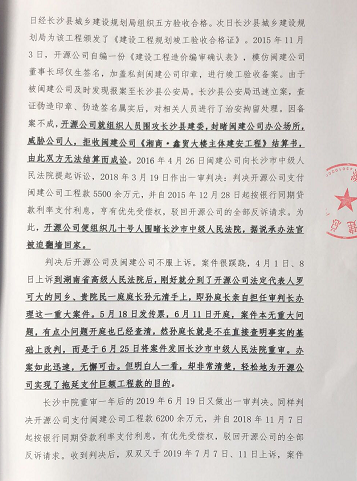 日经长沙县城乡建设规划局组织五方验收合格。次日长沙县城乡建设规
划局为该工程颁发了《建设工程规划竣工验收合格证》。2015年11月
3日，开源公司自编一份《建设工程造价编审确认表》，模仿闽建公司
董事长邱仅生签名，加盖私刻闽建公司印章，进行竣工验收备案。由于
被闽建公司及时发现报案至长沙县公安局。长沙县公安局迅速立案，查
证伪造印章、伪造签名属实后，对相关人员进行了治安拘留处理。因备
案不成，开源公司就组织人员围攻长沙县建委，封堵闽建公司办公场所，
威胁公司人，拒收闽建公司《湘南·鑫贸大楼主体建安工程》结算书，
由此双方无法结算而成讼。2016年4月26日闽建公司向长沙市中级人
民法院提起诉讼，2018年3月19日作出一审判决：判决开源公司支付
闽建公司工程款5500余万元，并自2015年12月28日起按银行同期贷
款利率支付利息，享有优先受偿权，驳回开源公司的全部反诉请求。为
此，开源公司便组织几十号人围堵长沙市中级人民法院，据说承办法官
被迫翻墙回家。
判决后开源公司及闽建公司不服上诉。案件很蹊跷，4月1日、8
日上诉到湖南省高级人民法院后，刚好就分到了开源公司法定代表人罗
可大的同乡、贵院民一庭庭长孙元清手上，即孙庭长亲自担任审判长办
理这一重大案件。5月18日发传票，6月11日开庭，案件本无重大问
题，有点小问题开庭也已经查清，然孙庭长就是不在直接查明事实的基
础上改判，而是于6月25日将案件发回长沙市中级人民法院重审。办
案如此迅速，无懈可击。但明白人一看，却非常清楚，轻松地为开源公
司实现了拖延支付巨额工程款的目的。
长沙中院重审一年后的2019年6月19日又做出一审判决。同样判
决开源公司支付闽建公司工程款6200余万元，并自2018年11月7日
起按银行同期贷款利率支付利息，有优先受偿权，驳回开源公司的全部
反诉请求。收到判决后，双双又于2019年7月7日、11日上诉，案件